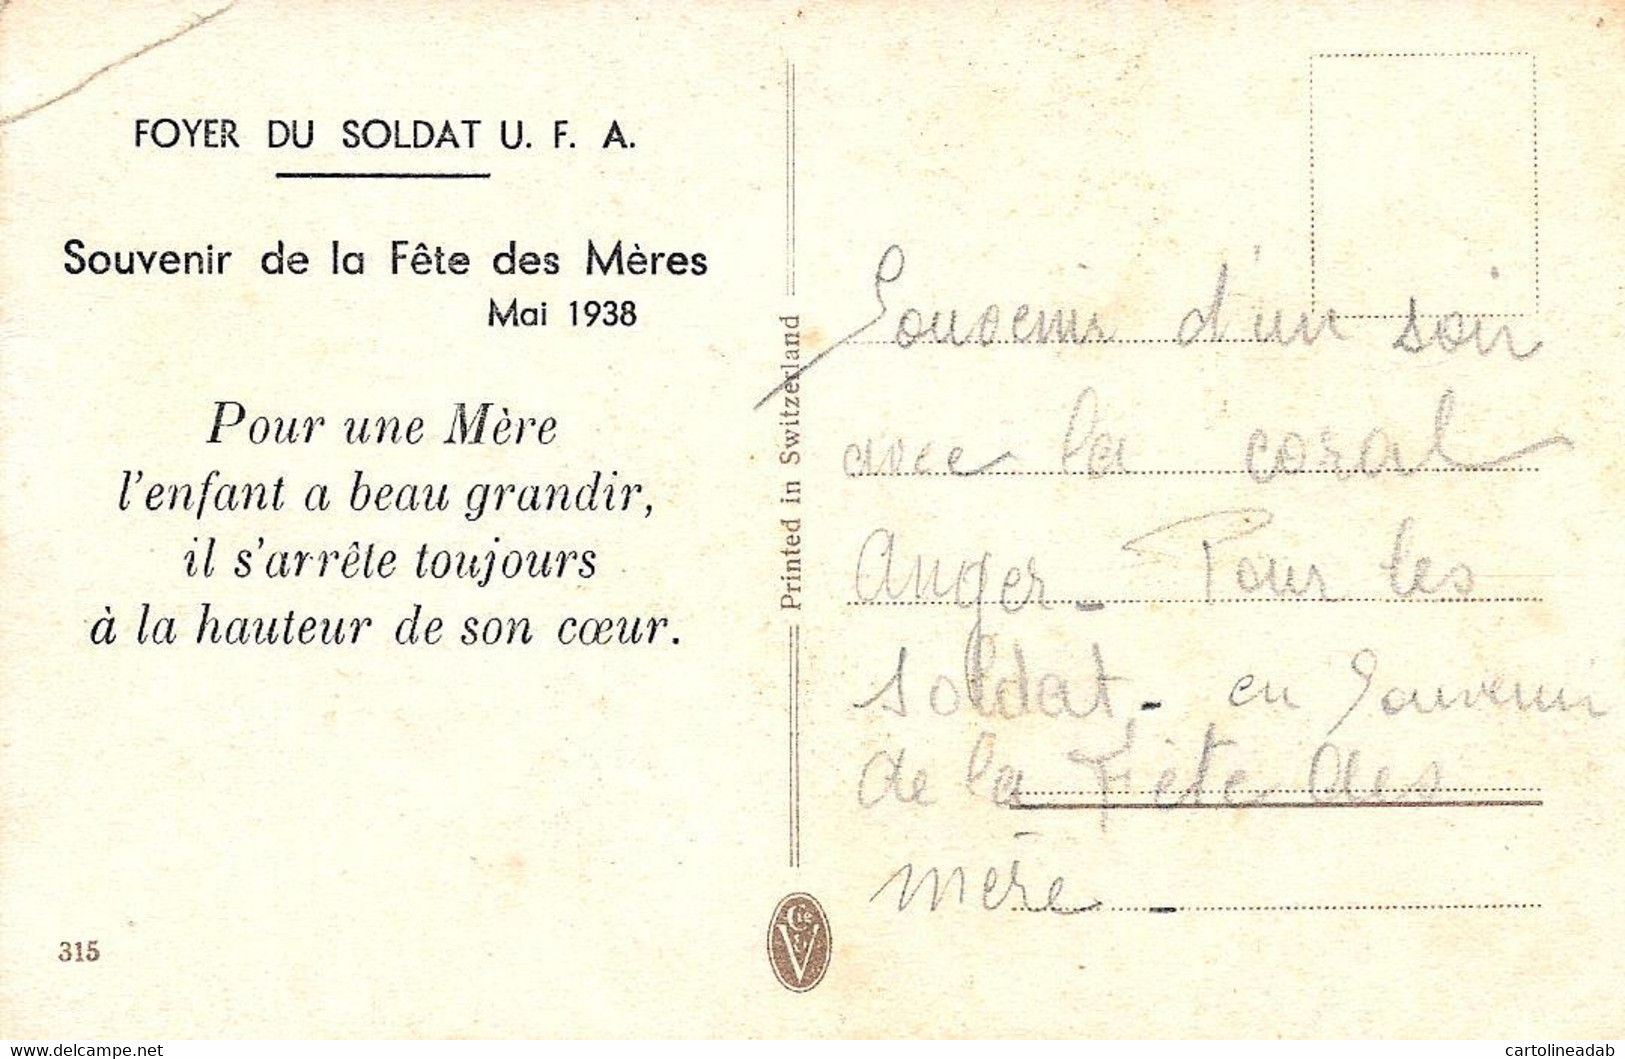 FOYER DU SOLDAT U. F. A.
Souvenir de la Fête des Mères
Mai 1938
Pour une Mère
l'enfant a beau grandir,
il s'arrête toujours
à la hauteur de son cœur.
315
Printed in Switzerland
Cie
V
Souvenir d'un soir
avec la coral
Anger - Pour les
soldat, - en Souvenir
de la Fête des
mère -
www.delcampe.net
cartolineadab